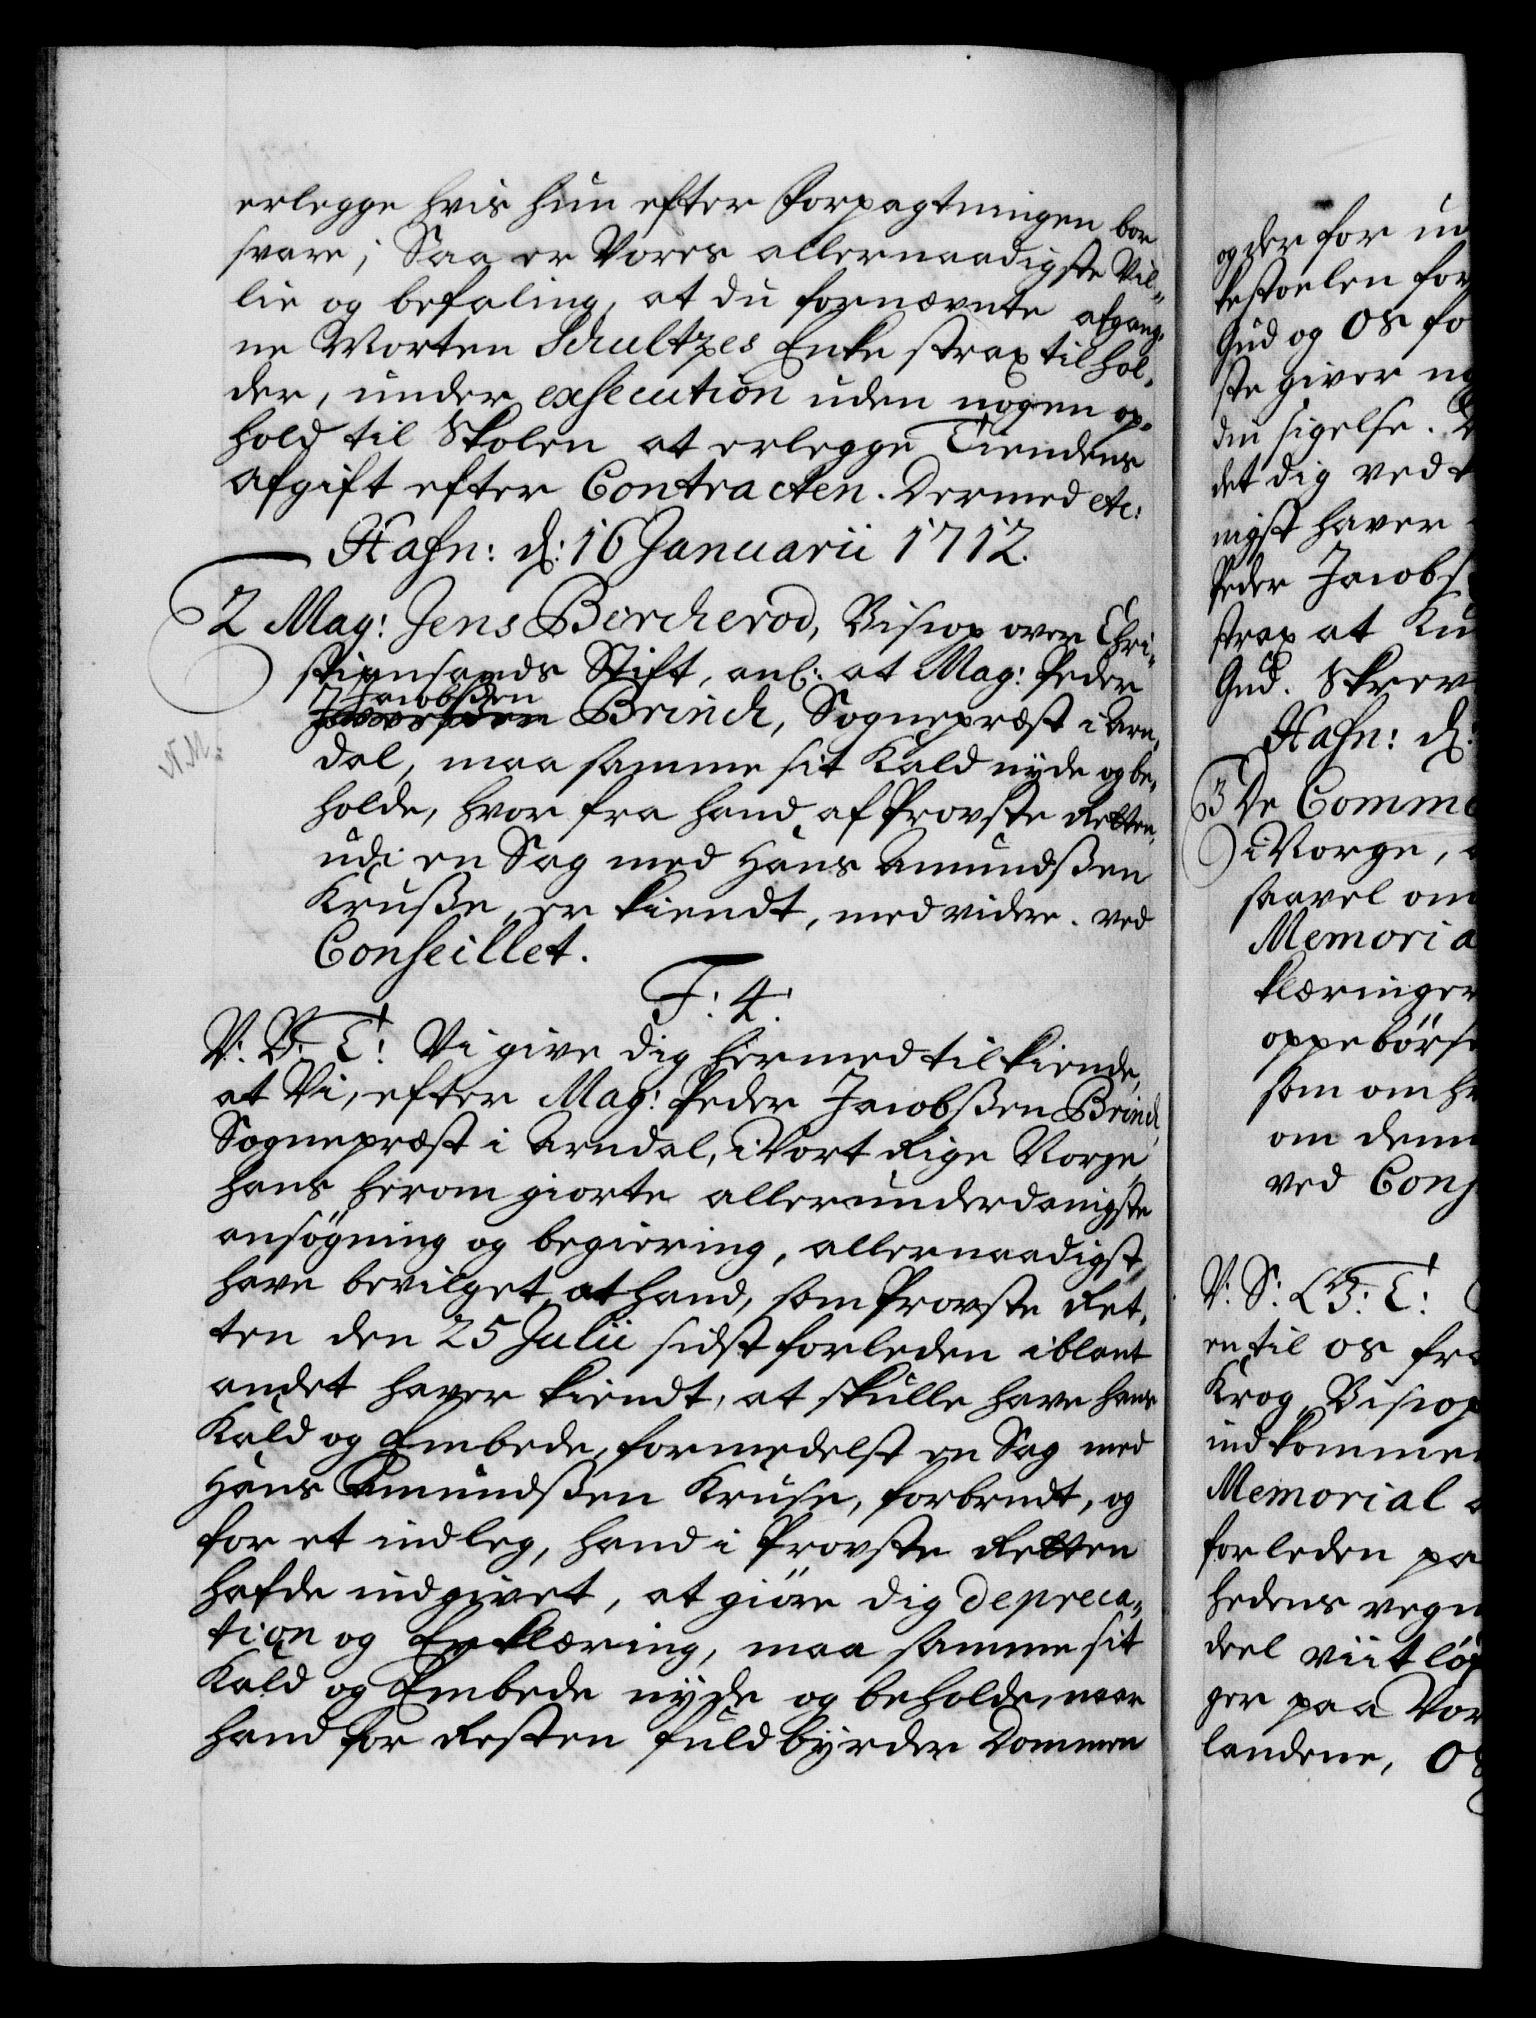 erlegge hvis hun efter Forpagtningen bør
svare; Saa er Vores allernaadigste Vil-
lie og befaling, at du fornævnte afgang-
ne Morten Schultzes Enke strax tilhol-
der, under exsecution uden nogen op-
hold til Skolen at erlegge Tiendens
afgift efter Contracten. Dermed etc:
Hafn: d: 16 Januarii 1712.
2 Mag: Jens Bircherod, Bisiop over Chri-
stiansands Stift, anl: at Mag: Peder
Jacobsßen
Brinch, Sognepræst i Arn-
dal, maa samme sit Kald nyde og be-
holde, hvor fra hand af Provste Retten,
udi en Sag med Hans Amundßen
Kruße, er kiendt, med videre. ved
Conseillet.
F: 4:
V: B: T: Vi give dig hermed tilkiende,
at Vi, efter Mag: Peder Jacobßen Brinch,
Sognepræst i Arndal, i Vort Rige Norge,
hans herom giorte allerunderdanigste
ansøgning og begiering, allernaadigst
have bevilget, at hand, som Provste Ret-
ten den 25 Julii sidst forleden iblant
andet haver kiendt, at skulle have hans
Kald og Embede, formedelst en Sag med
Hans Amundßen Kruse, forbrudt, og
for et indleg, hand i Provste Retten
hafde indgivet, at giøre dig depreca-
tion og Erklæring, maa samme sit
Kald og Embede nyde og beholde, naar
hand for Resten fuldbyrder Dommen
og der for ud
Gud og OS fo
ste giver
det dig ved
nigst haver
Peder Jacobs
strax at
Gud. Skrev
Hafn: d:
3 De Comm
i Norge,
saavel om
Memoria
klæringer
oppebörse
som om
om denn
ved Cons
V: S: L B: T:
en til OS fra
Krog, Bisiop
indkommen
Memorial
forleden paa
hedens vegn
deel viitløf
ger paa Vor
landene, OS